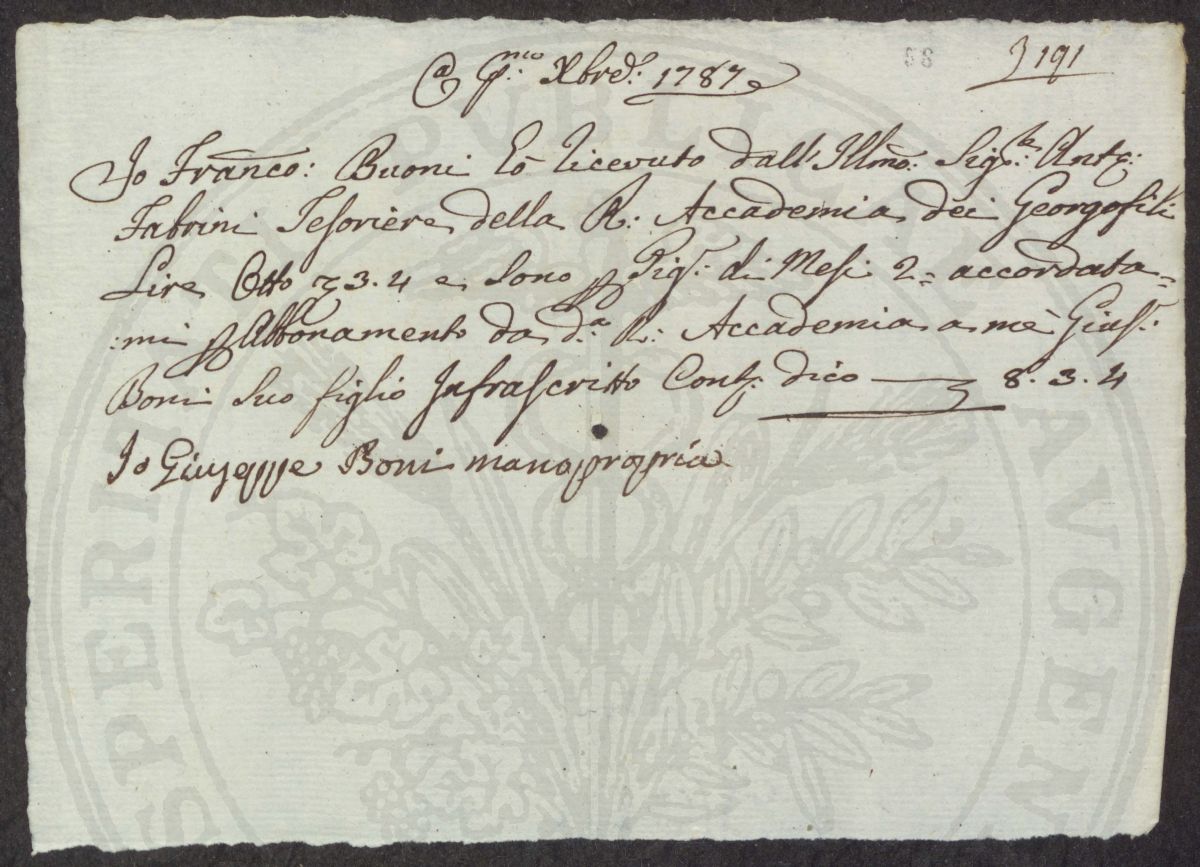 58
191
A P.mo Xbre. 1787
Io Franco: Buoni ho ricevuto dall' Illmo: Sig.re Ant:
Fabrini Tesoriere della R: Accademia dei Georgofili
Lire Otto 3.4 e sono Pig: di Mesi 2= accordata=
:mi Abbonamento da d.a R: Accademia a me Gius:
Boni suo figlio Infrascritto Cont: dico — 8.3.4
Io Giuseppe Boni manopropria
PUBLICAE
AUGEN
SPERITATI